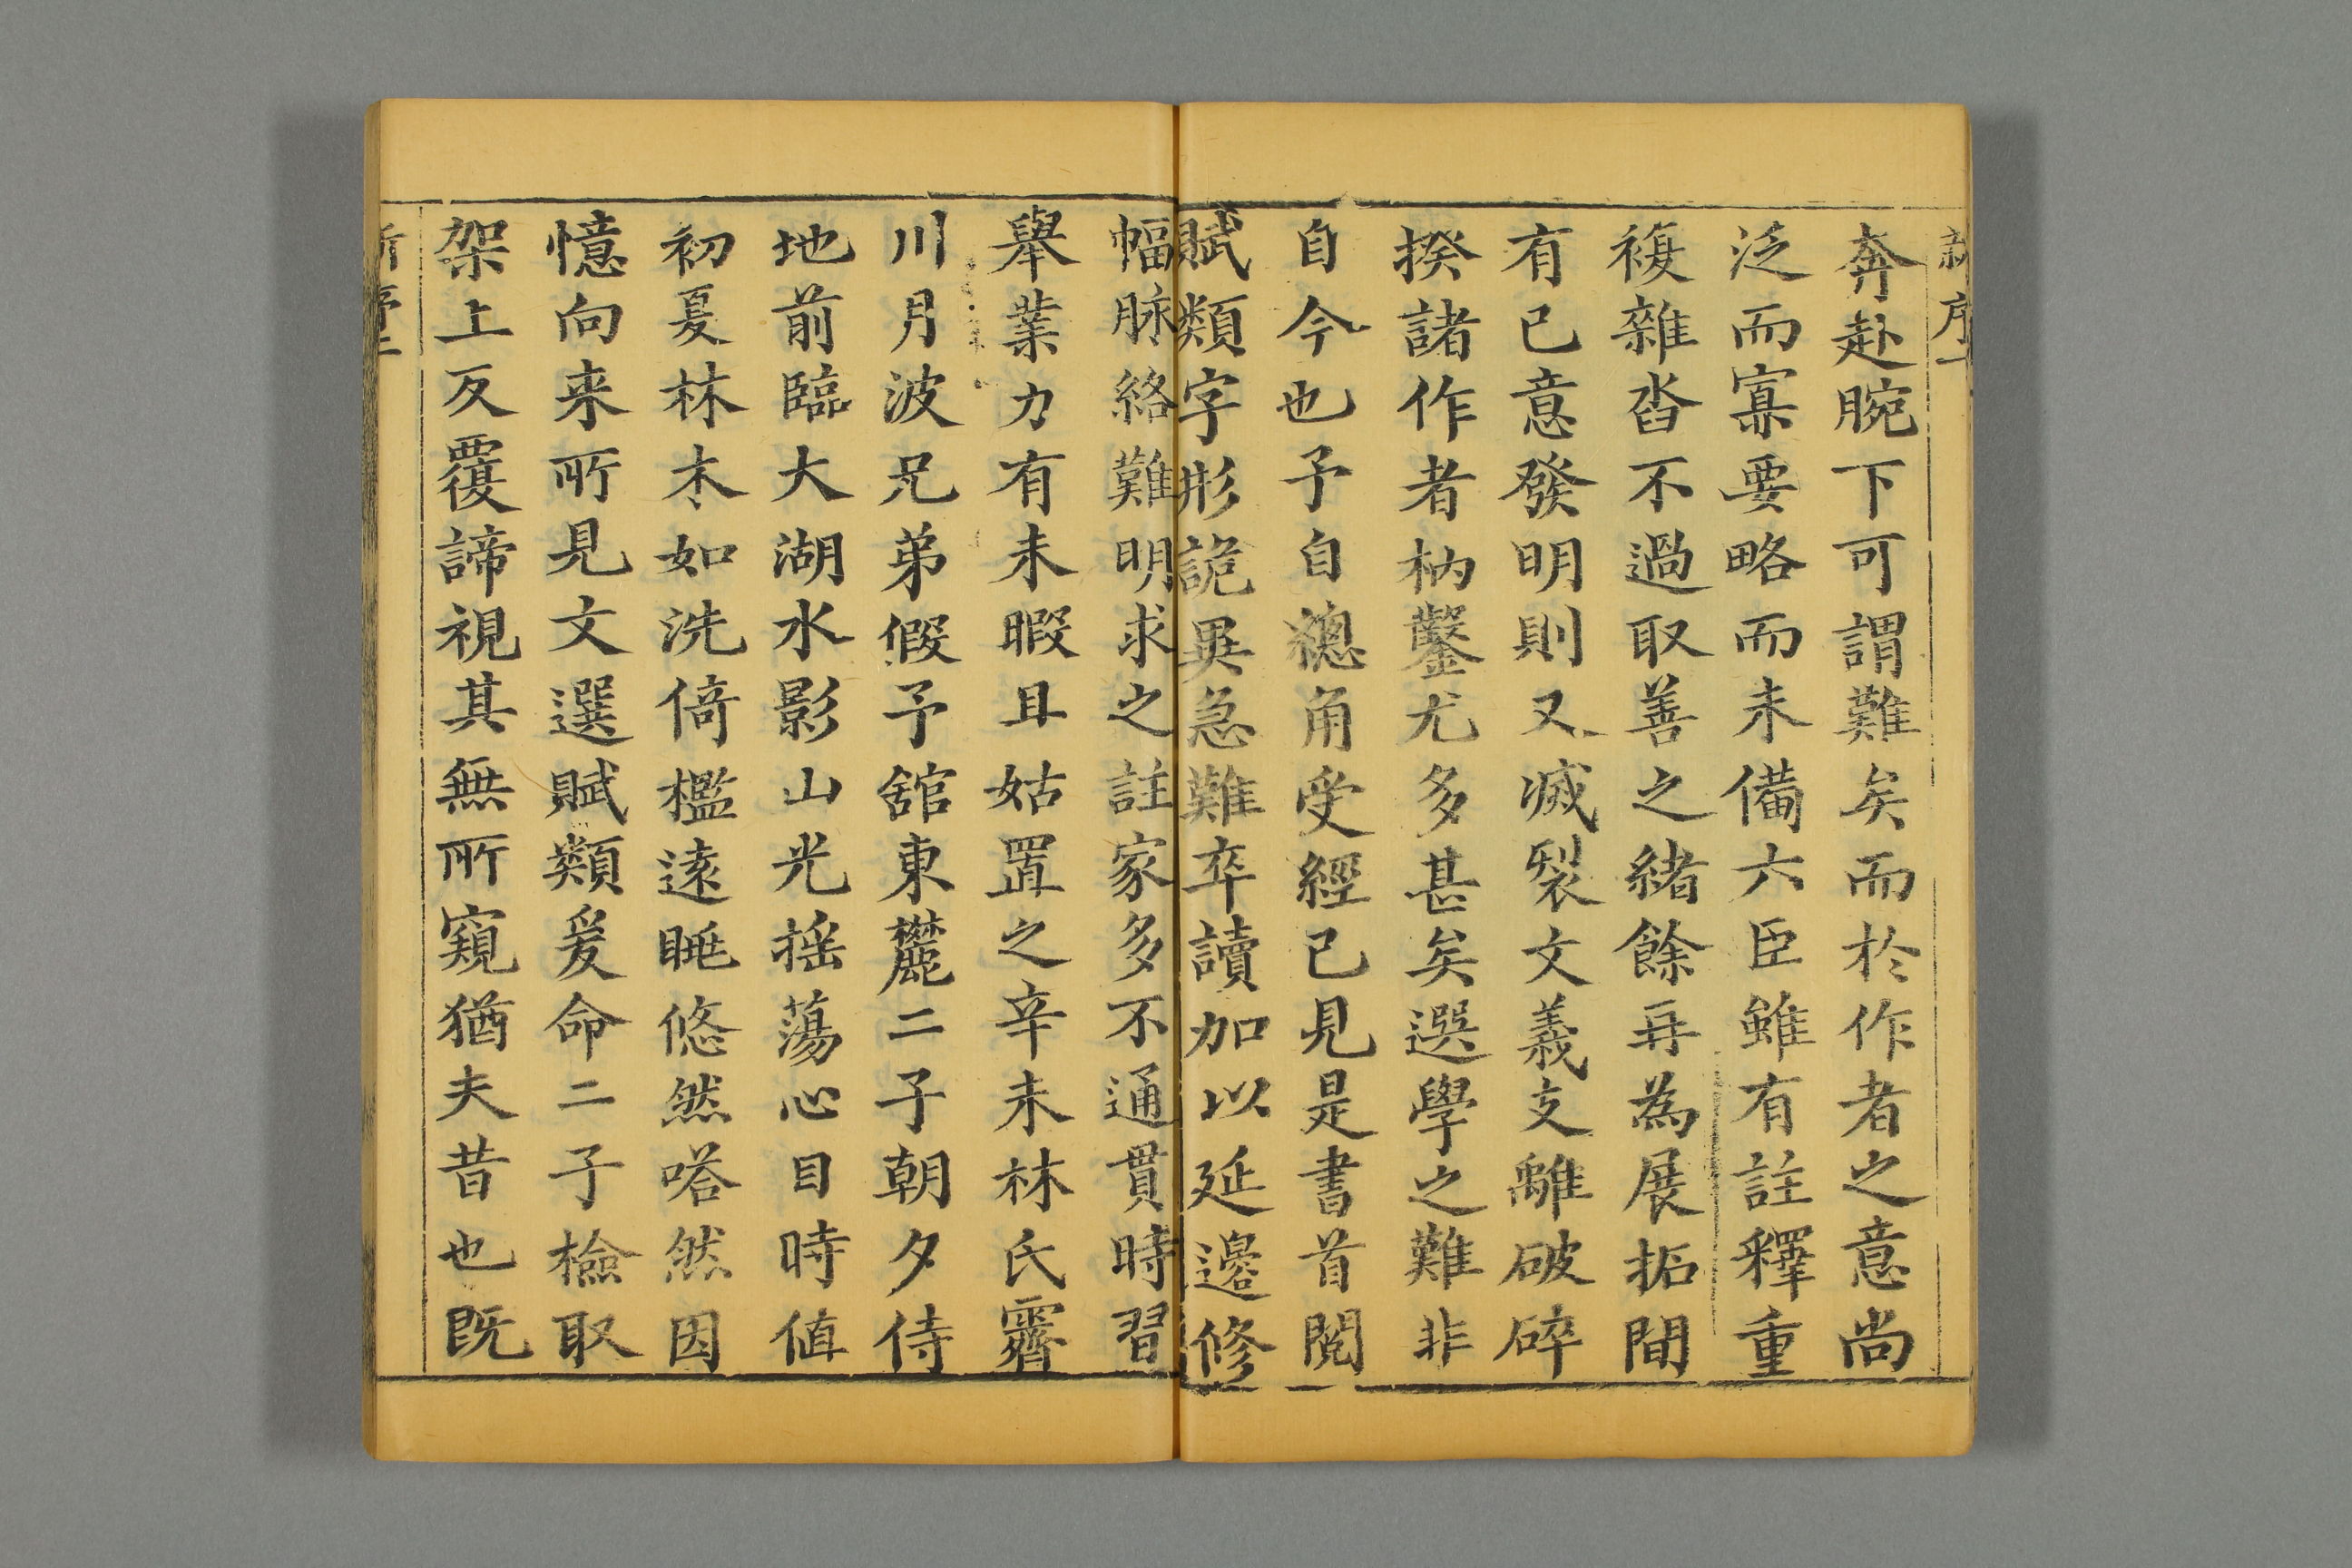 新序一
奔赴腕下可謂難矣而於作者之意尚
泛而寡要略而未備六臣雖有註釋重
複雜沓不過取善之緒餘再為展拓間
有已意發明則又滅裂文義支離破碎
揆諸作者枘鑿尤多甚矣選學之難非
自今也予自總角受經已見是書首閱
賦類字形詭異急難卒讀加以延邊修
幅脉絡難明求之註家多不通貫時習
舉業力有未暇且姑置之辛未林氏霽
川月波兄弟假予舘東麓二子朝夕侍
地前臨大湖水影山光搖蕩心目時値
初夏林木如洗倚檻遠睡悠然嗒然因
憶向来所見文選賦類爰命二子檢取
架上反覆諦視其無所窺猶夫昔也既
新序二